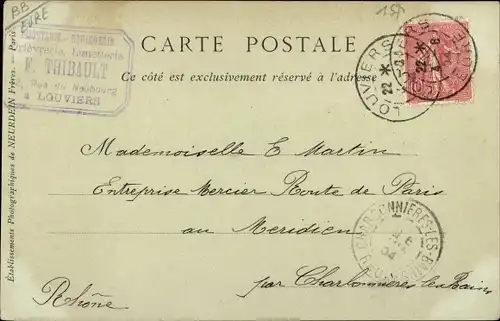 BB
EURE
155
HORLOGERIE - BIJOUTERIE
Orfèvrerie, Lunetterie
E. THIBAULT
Rue du Neubourg
à LOUVIERS
CARTE POSTALE
Ce côté est exclusivement réservé à l'adresse
LOUVIERS
22
EURE
Mademoiselle E Martin
Entreprise Mercier Route de Paris
au Meridien
par Charbonnières les Bains
Rhône
CHARBONNIERES-LES-BAINS
04
Établissements Photographiques de NEURDEIN Frères. - Paris